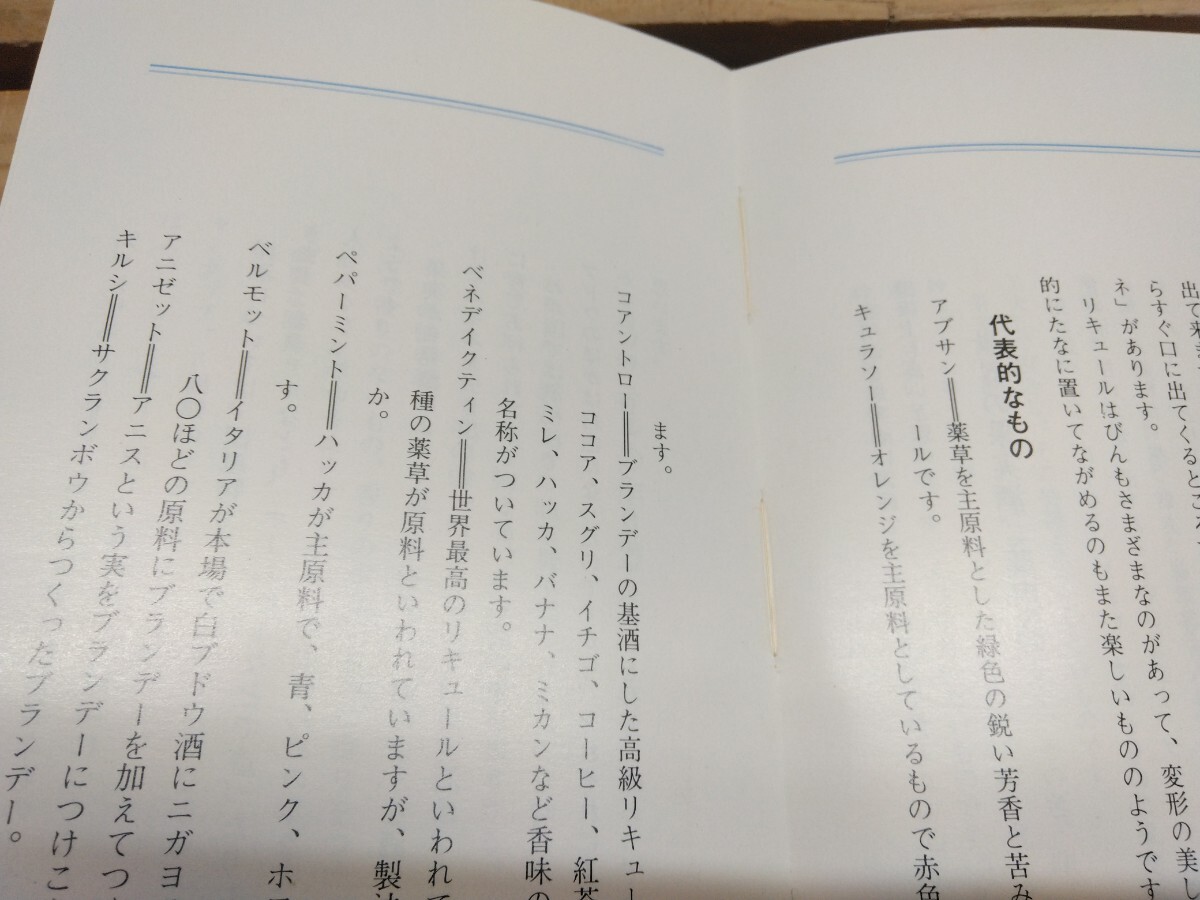 らすぐ口に出てくるところ
ネ」があります。
リキュールはびんもさまざまなのがあって、変形の美し
的にたなに置いてながめるのもまた楽しいもののようです
代表的なもの
アブサン＝薬草を主原料とした緑色の鋭い芳香と苦み
ールです。
キュラソー＝オレンジを主原料としているもので赤色
ます。
コアントロー＝ブランデーの基酒にした高級リキュー
ココア、スグリ、イチゴ、コーヒー、紅茶
ミレ、ハッカ、バナナ、ミカンなど香味の
名称がついています。
ベネデイクティン＝世界最高のリキュールといわれて
種の薬草が原料といわれていますが、製法
か。
ペパーミント＝ハッカが主原料で、青、ピンク、ホワ
す。
ベルモット＝イタリアが本場で白ブドウ酒にニガヨ
八〇ほどの原料にブランデーを加えてつ
アニゼット＝アニスという実をブランデーにつけこ
キルシ＝サクランボウからつくったブランデー。